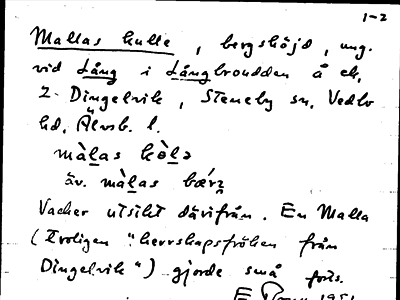 1-2
Mallas kulle, bergshöjd, ung.
vid Lång i Långbroudden å ek.
2. Dingelvik, Steneby sn, Vedbo
hd, Älvsb. l.
màl̲as kòl̲ə
äv. màl̲as bǽrn̲
Vacker utsikt därifrån. En Malla
(troligen "herrskapsfröken från
Dingelvik") gjorde små